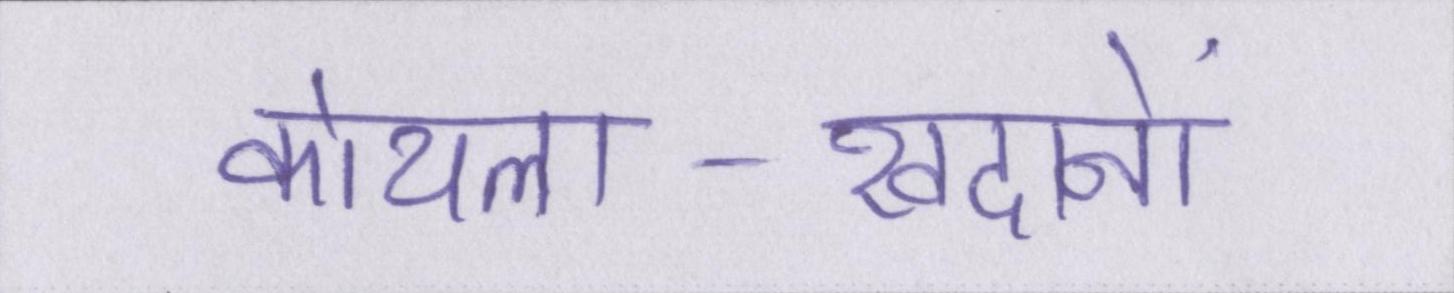 कोयला - खदानों